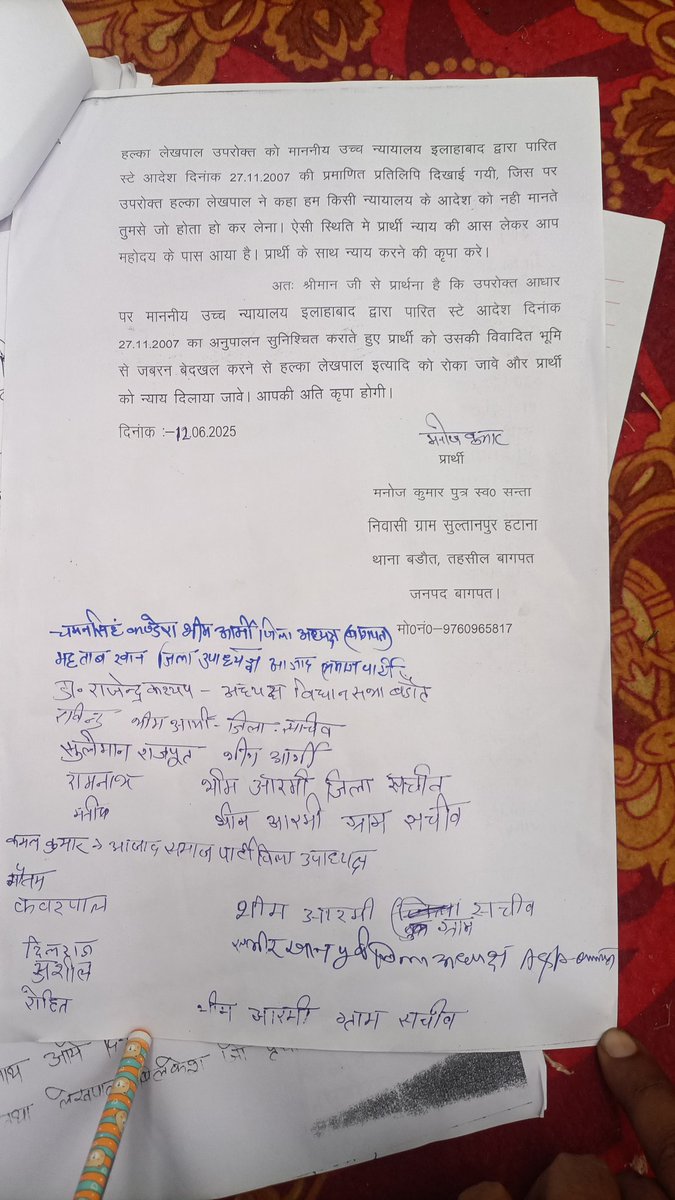 हल्का लेखपाल उपरोक्त को माननीय उच्च न्यायालय इलाहाबाद द्वारा पारित
स्टे आदेश दिनांक 27.11.2007 की प्रमाणित प्रतिलिपि दिखाई गयी, जिस पर
उपरोक्त हल्का लेखपाल ने कहा हम किसी न्यायालय के आदेश को नही मानते
तुमसे जो होता हो कर लेना। ऐसी स्थिति मे प्रार्थी न्याय की आस लेकर आप
महोदय के पास आया है। प्रार्थी के साथ न्याय करने की कृपा करे।
अतः श्रीमान जी से प्रार्थना है कि उपरोक्त आधार
पर माननीय उच्च न्यायालय इलाहाबाद द्वारा पारित स्टे आदेश दिनांक
27.11.2007 का अनुपालन सुनिश्चित कराते हुए प्रार्थी को उसकी विवादित भूमि
से जबरन बेदखल करने से हल्का लेखपाल इत्यादि को रोका जावे और प्रार्थी
को न्याय दिलाया जावे। आपकी अति कृपा होगी।
दिनांक :-12.06.2025
मनोज कुमार
प्रार्थी
मनोज कुमार पुत्र स्व0 सन्ता
निवासी ग्राम सुल्तानपुर हटाना
थाना बडौत, तहसील बागपत
जनपद बागपत।
मो0नं0-9760965817
भीम आर्मी जिला अध्यक्ष (बागपत)
महताब खान जिला उपाध्यक्ष आजाद समाज पार्टी
डा. राजेन्द्र कश्यप - अध्यक्ष विधान सभा बडौत
रविन्द्र भीम आर्मी - जिला सचिव
सुलेमान राजपूत भीम आर्मी
रामनाथ भीम आरमी जिला सचीव
भीम आरमी ग्राम सचीव
कमल कुमार → आजाद समाज पार्टी जिला उपाध्यक्ष
गौतम
कवरपाल भीम आरमी सचीव
ग्राम
समीर खान पूर्व जिला अध्यक्ष
दिलराज
अशोक
रोहित भीम आरमी ग्राम सचीव